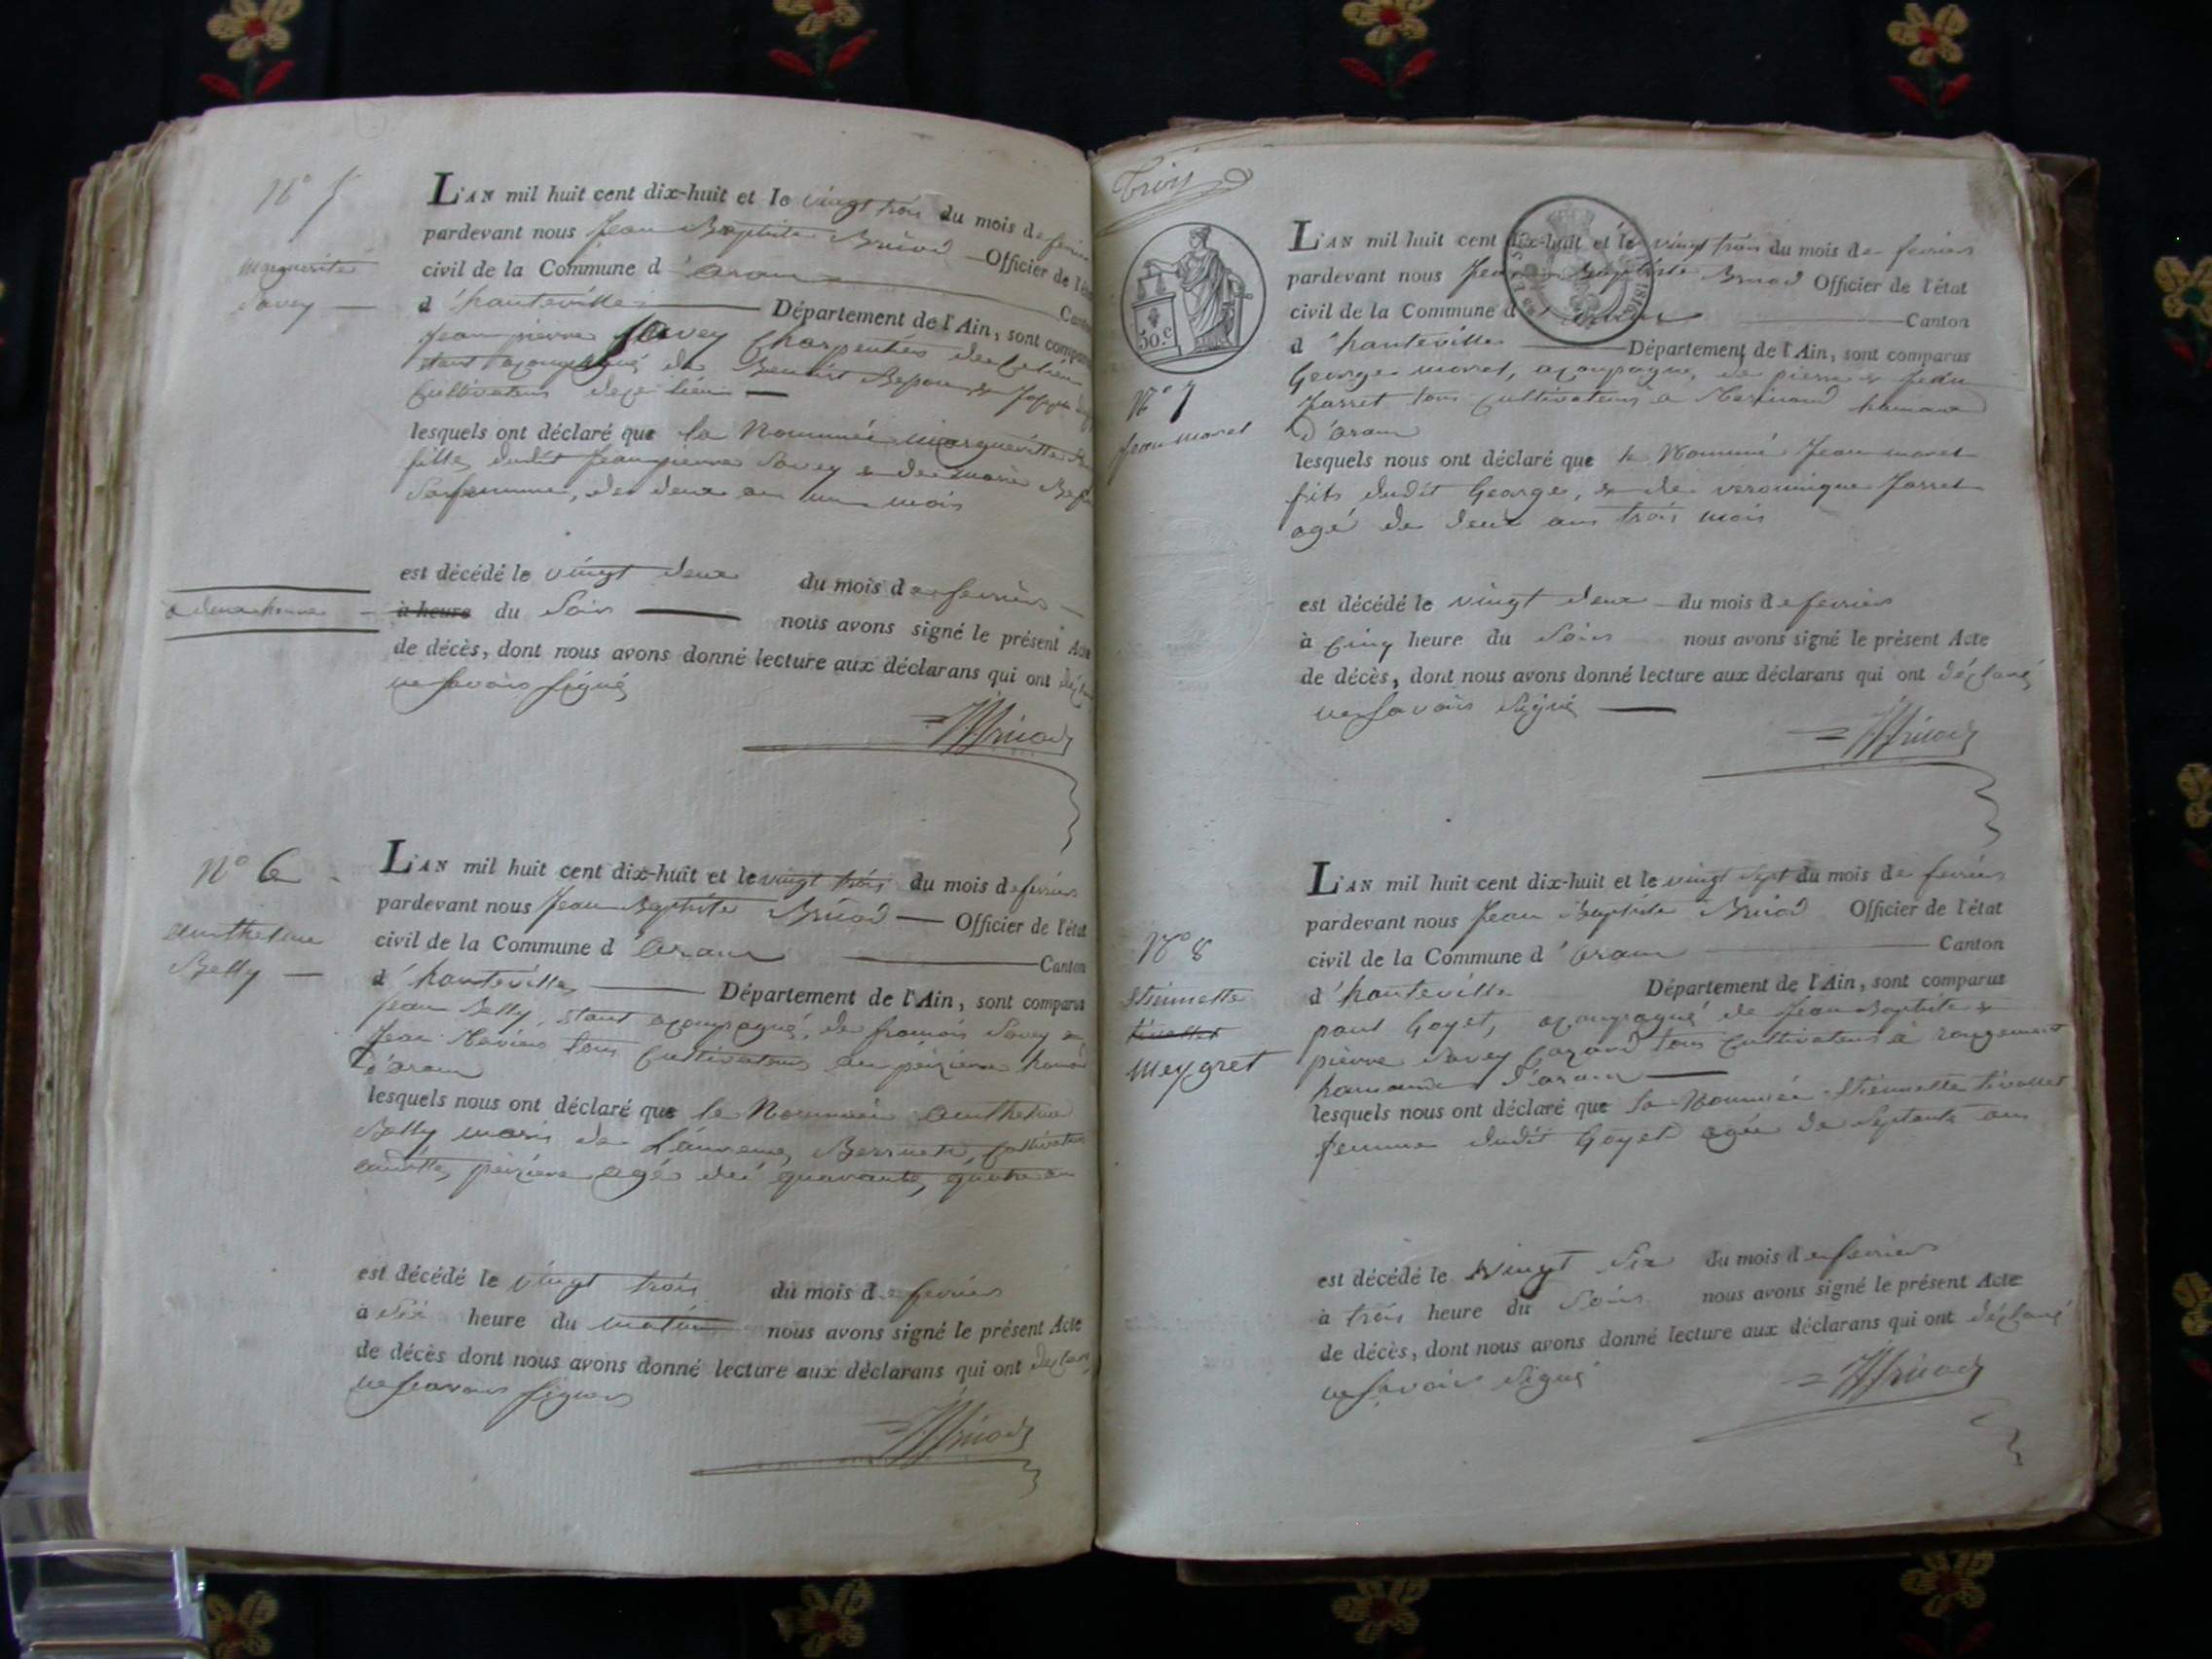 N° 5
Marguerite
Savey —
L'AN mil huit cent dix-huit et le vingt trois du mois de
pardevant nous Jean Baptiste Officier de
civil de la Commune d'aran
d'hauteville Département de l'Ain, sont
Jean pierre Savey Charpentier
étant de Benoist
Cultivateurs
lesquels ont déclaré que la Nommée Marguerite
fille dudit Jean pierre Savey & de marie
Sa femme, de deux an un mois
est décédé le vingt deux du mois de fevrier
à deux heures
à heure du Soir nous avons signé le présent Acte
de décès, dont nous avons donné lecture aux déclarans qui ont
ne Savoir Signé
N° 6
Anthelme
Belly —
L'AN mil huit cent dix-huit et le vingt trois du mois de fevrier
pardevant nous Jean Baptiste — Officier de l'état
civil de la Commune d'aran Canton
d'hauteville Département de l'Ain, sont comparus
Jean Belly, étant acompagné, de francois Savey &
Jean tous Cultivateurs
D'aran
lesquels nous ont déclaré que le Nommé Anthelme
Belly maris de Laurence
agé de quarante, quatre an
est décédé le vingt trois du mois de fevrier
à Six heure du matin nous avons signé le présent Acte
de décès dont nous avons donné lecture aux déclarans qui ont
ne Scavoir Signer
Trois
50 c
N° 7
Jean moret
L'AN mil huit cent dix-huit et le vingt trois du mois de fevrier
pardevant nous Jean Baptiste Officier de l'état
civil de la Commune d'aran Canton
d'hauteville Département de l'Ain, sont comparus
George moret, acompagné, de pierre & Jean
Jarret tous Cultivateurs a
D'aran
lesquels nous ont déclaré que le Nommé Jean moret
fils dudit George, & de veronnique Jarret
agé de deux ans trois mois
est décédé le vingt deux du mois de fevrier
à Cinq heure du Soir nous avons signé le présent Acte
de décès, dont nous avons donné lecture aux déclarans qui ont déclaré
ne Savoir Signé —
N° 8
Etiennette
Meygret
L'AN mil huit cent dix-huit et le vingt Sept du mois de fevrier
pardevant nous Jean Baptiste Officier de l'état
civil de la Commune d'aran Canton
d'hauteville Département de l'Ain, sont comparus
paul Goyet, acompagné de Jean Baptiste &
pierre Savey tous Cultivateurs à rougemont
D'aran —
lesquels nous ont déclaré que la Nommée Etiennette
femme dudit Goyet agée de Septante ans
est décédé le vingt Six du mois de fevrier
à trois heure du Soir nous avons signé le présent Acte
de décès, dont nous avons donné lecture aux déclarans qui ont déclaré
ne Savoir Signé